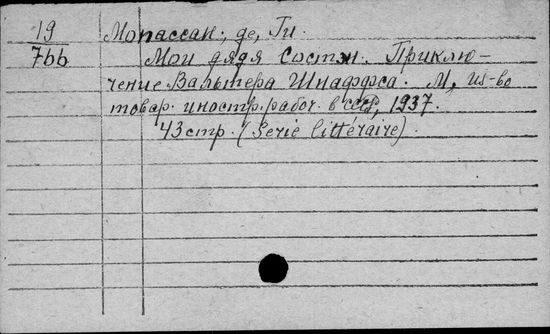 19
7bb
Мопассан, де, Ги.
Мой дядя Состэн. Приклю-
чение Вальтера Шнаффса. М, из-во
товар. иностр. рабоч. в СССР, 1937.
43 стр. (Serie littéraire).